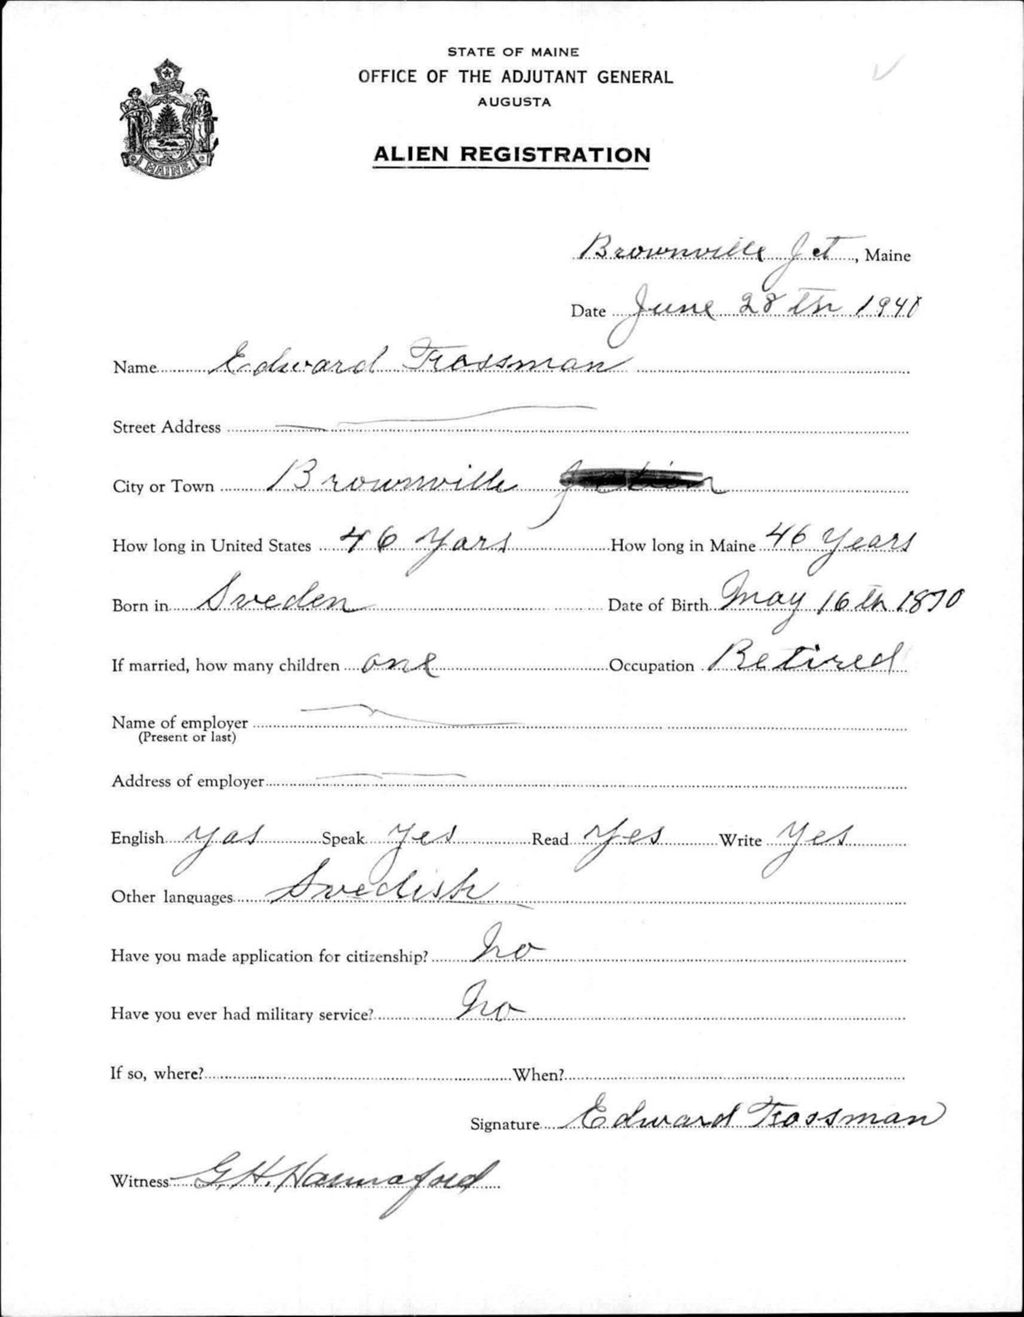 STATE OF MAINE
OFFICE OF THE ADJUTANT GENERAL
AUGUSTA
ALIEN REGISTRATION
MAINE
Brownville Jct, Maine
Date June 28th 1940
Name Edward Trossman
Street Address
City or Town Brownville
How long in United States 46 Yars How long in Maine 46 Years
Born in Sveden Date of Birth May 16th 1870
If married, how many children one Occupation Retired
Name of employer
(Present or last)
Address of employer
English yas Speak Yes Read Yes Write Yes
Other languages Swedish
Have you made application for citizenship? No
Have you ever had military service? No
If so, where? When?
Signature Edward Trossman
Witness G.H. Hannaford